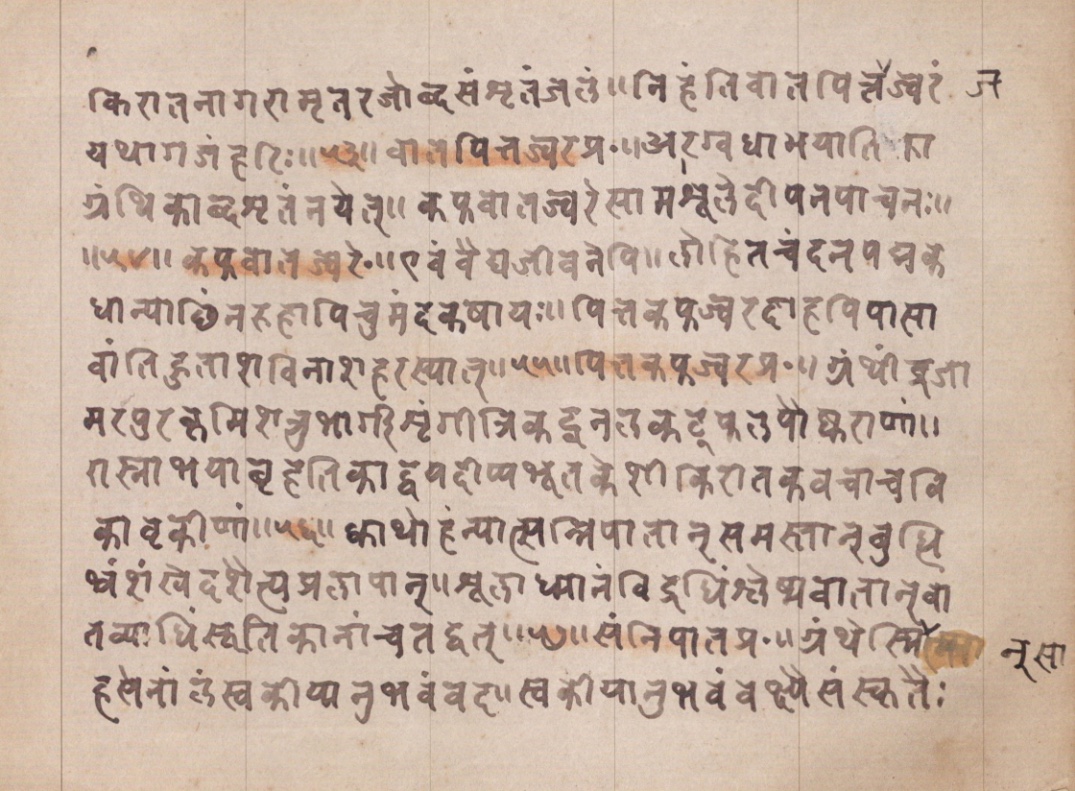 किरातनागरामृतरजोब्दसंशृतंजलं॥निहंतिवातपित्तज्वरं ज
यथागजंहरिः॥५३॥वातपित्तज्वरप्र॰॥अरग्वधाभयाति
ग्रंथिकाब्दशृतंनयेत्॥कफवातज्वरेसामशूलेदीपनपाचनः॥
॥५४॥कफवातज्वरे॰॥एवंवैद्यजीवनेपि॥लोहितचंदनपद्मक
धान्याछिंनरुहापिचुमंदकषायः॥पित्तकफज्वरदाहपिपासा
वांतिहुताशविनाशहरस्यात्॥५५॥पित्तकफज्वरप्र॰॥ग्रंथीं
मरपुरकृमिशत्रुभार्गीशृंगीत्रिकटूनलकट्फलपौष्कराणां॥
रास्नाभयाबृहतिकाद्वयदीप्यभूतकेशीकिरातकवचाचवि
कावृकीणां॥५६॥क्वाथोहंन्यात्सन्निपातान्समस्तान्बुधि
भ्रंशंस्वेदशैत्यप्रलापान्॥शूलाध्मानंविद्रधिंश्लेष्मवातान्वा
तव्याधिंसूतिकानांचतद्वत्॥५७॥संनिपातप्र॰॥ग्रंथेस्मि न्सा
हसेनालंस्वकीयनुभवंवद॥स्वकीयानुभवंवक्ष्यैसंस्कृतैः